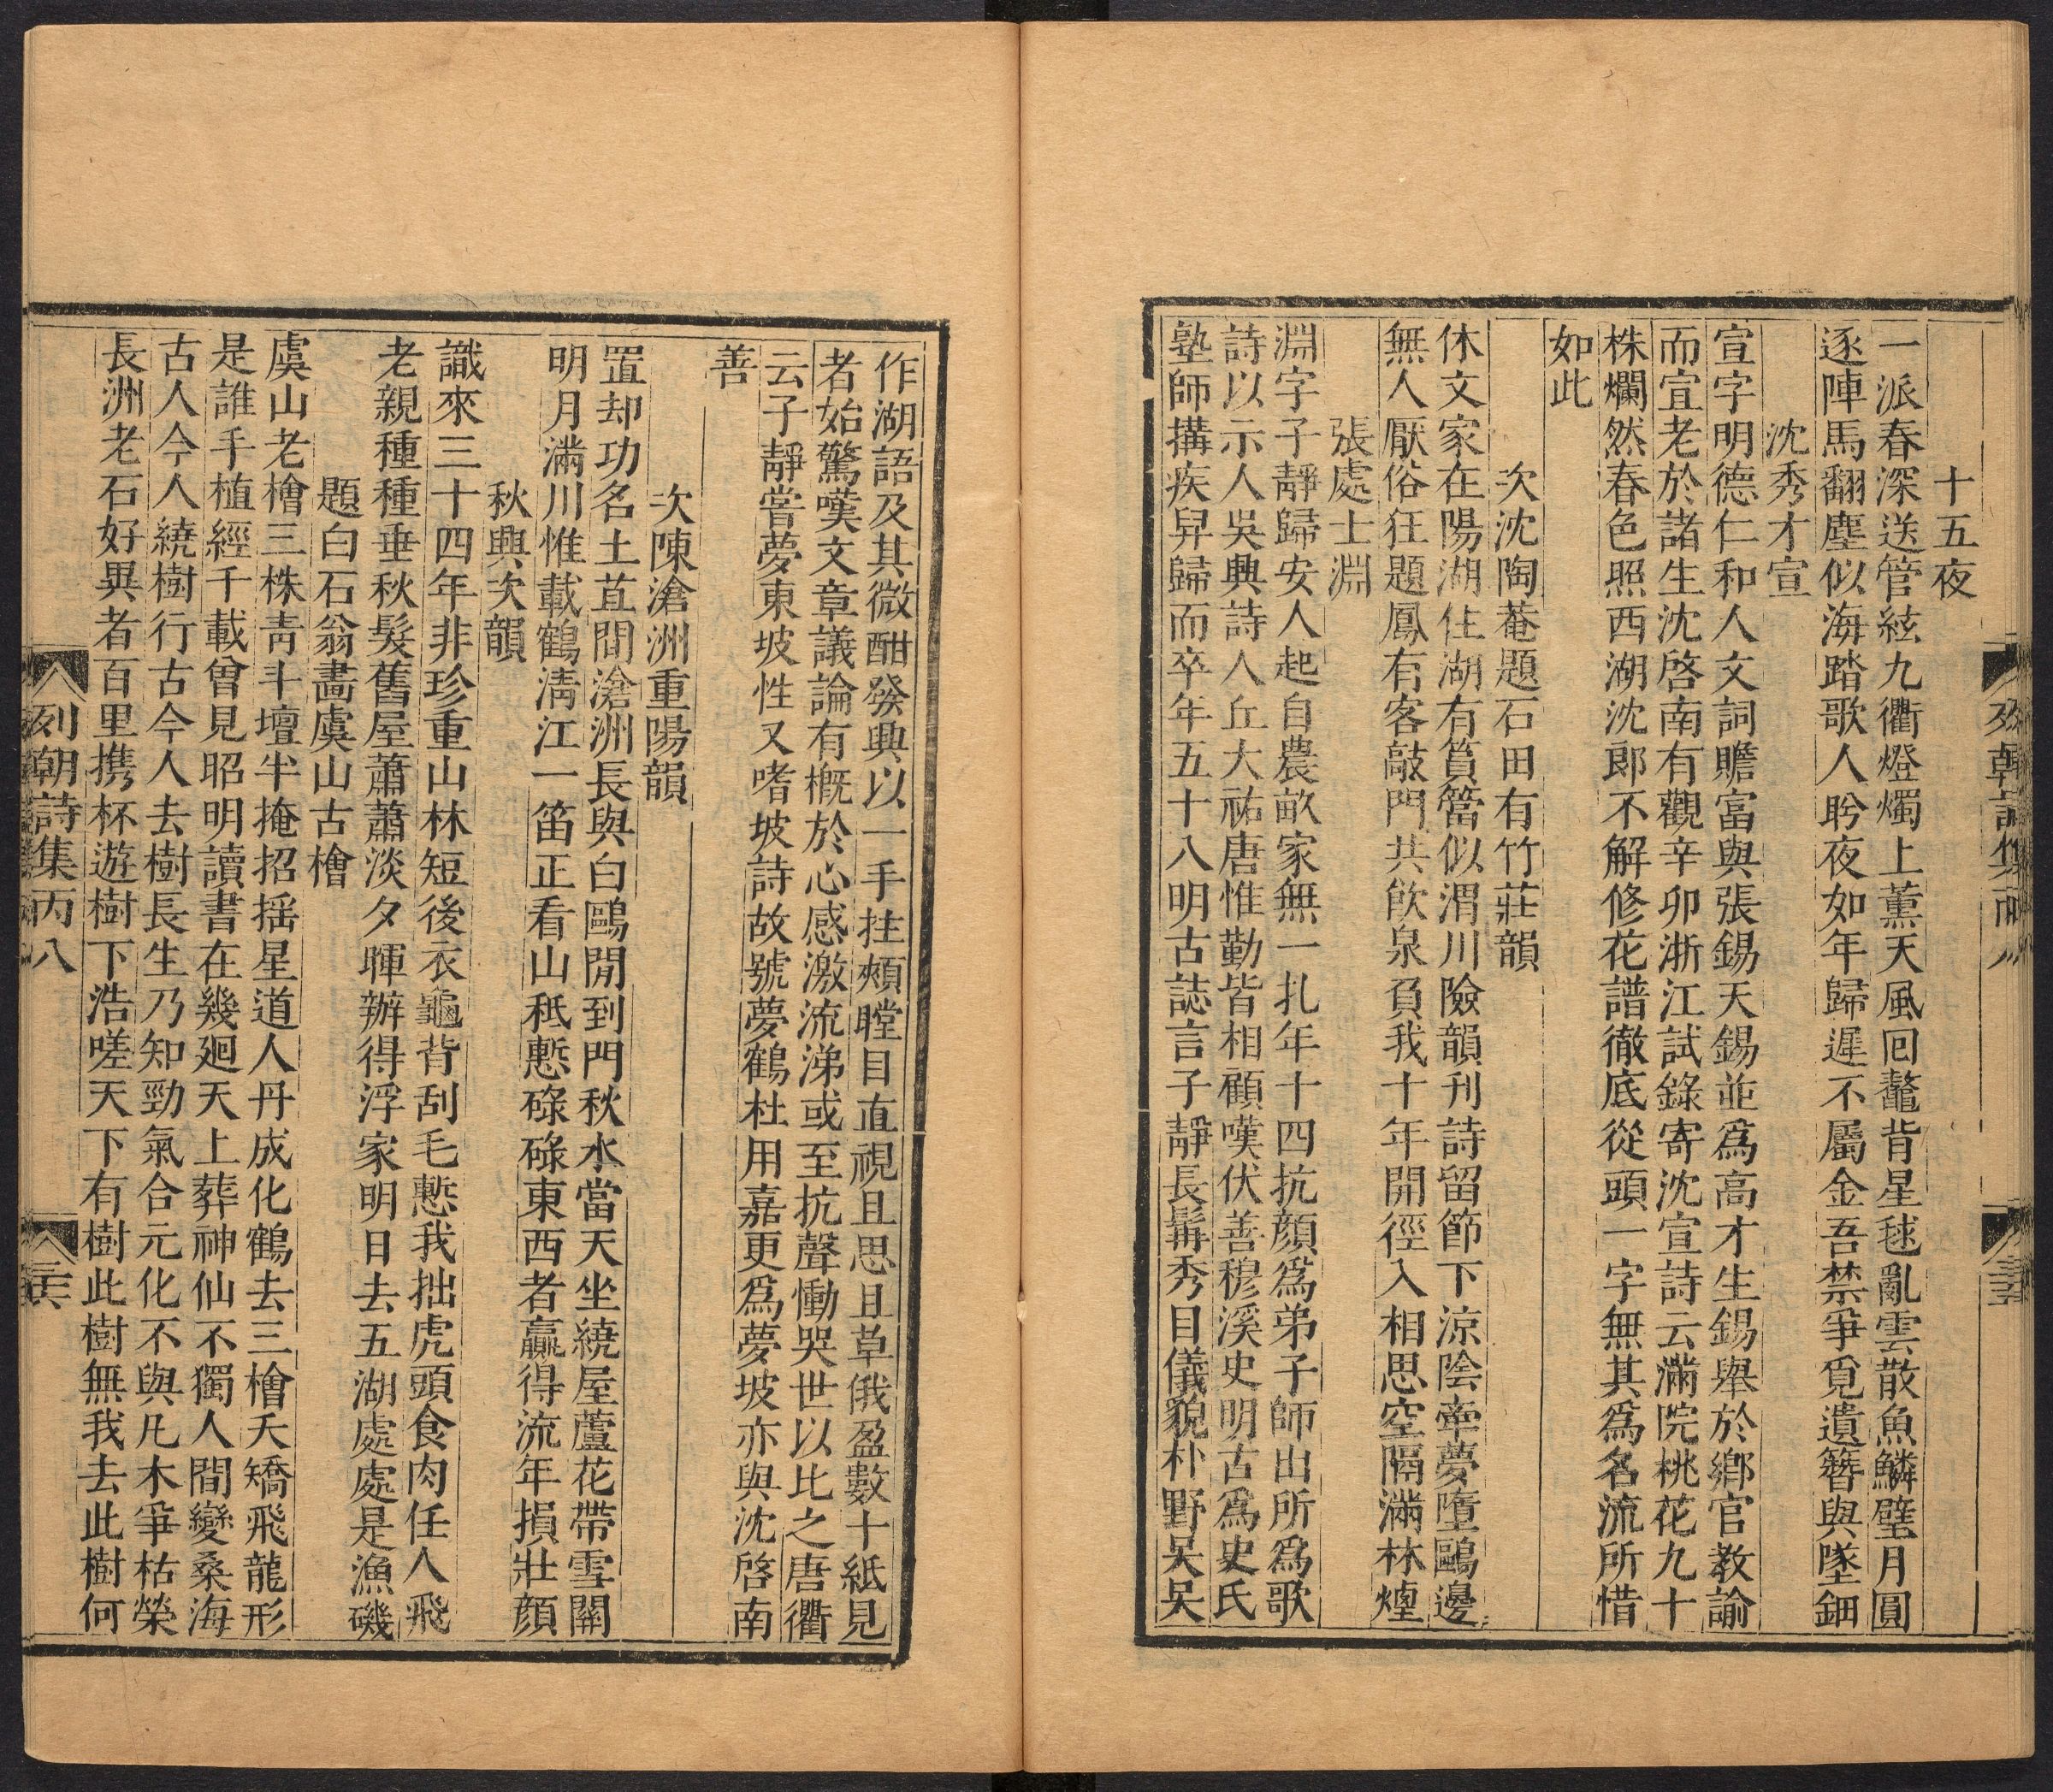 十五夜
一派春深送管絃九衢燈燭上薰天風回鼇背星毬亂雲散魚鱗璧月圓
逐陣馬翻塵似海踏歌人盻夜如年歸遲不屬金吾禁爭覓遺簪與墜鈿
沈秀才宣
宣字明德仁和人文詞贍富與張錫天錫並爲高才生錫舉於鄉官教諭
而宣老於諸生沈啓南有觀辛卯浙江試錄寄沈宣詩云滿院桃花九十
株爛然春色照西湖沈郎不解修花譜徹底從頭一字無其爲名流所惜
如此
次沈陶菴題石田有竹莊韻
休文家在陽湖住湖有篔簹似渭川險韻刋詩留節下涼陰牽夢墮鷗邊
無人厭俗狂題鳳有客敲門共飲泉負我十年開徑入相思空隔滿林煙
張處士淵
淵字子靜歸安人起自農畝家無一扎年十四抗顏爲弟子師出所爲歌
詩以示人吳興詩人丘大祐唐惟勤皆相顧嘆伏善穆溪史明古爲史氏
塾師搆疾舁歸而卒年五十八明古誌言子靜長髯秀目儀貌朴野吴吴
作湖語及其微酣發興以一手拄頰瞠目直視且思且草俄盈數十紙見
者始驚嘆文章議論有概於心感激流涕或至抗聲慟哭世以比之唐衢
云子靜嘗夢東坡性又嗜坡詩故號夢鶴杜用嘉更爲夢坡亦與沈啓南
善
次陳滄洲重陽韻
置却功名土苴間滄洲長與白鷗閒到門秋水當天坐繞屋蘆花帶雪關
明月滿川惟載鶴淸江一笛正看山秪慙碌碌東西者贏得流年損壯顏
秋興次韻
識來三十四年非珍重山林短後衣龜背刮毛慙我拙虎頭食肉任人飛
老親種種垂秋髮舊屋蕭蕭淡夕暉辦得浮家明日去五湖處處是漁磯
題白石翁畵虞山古檜
虞山老檜三株靑斗壇半掩招搖星道人丹成化鶴去三檜夭矯飛龍形
是誰手植經千載曾見昭明讀書在幾廻天上葬神仙不獨人間變桑海
古人今人繞樹行古今人去樹長生乃知勁氣合元化不與凡木爭枯榮
長洲老石好異者百里携杯遊樹下浩嗟天下有樹此樹無我去此樹何
列朝詩集丙八